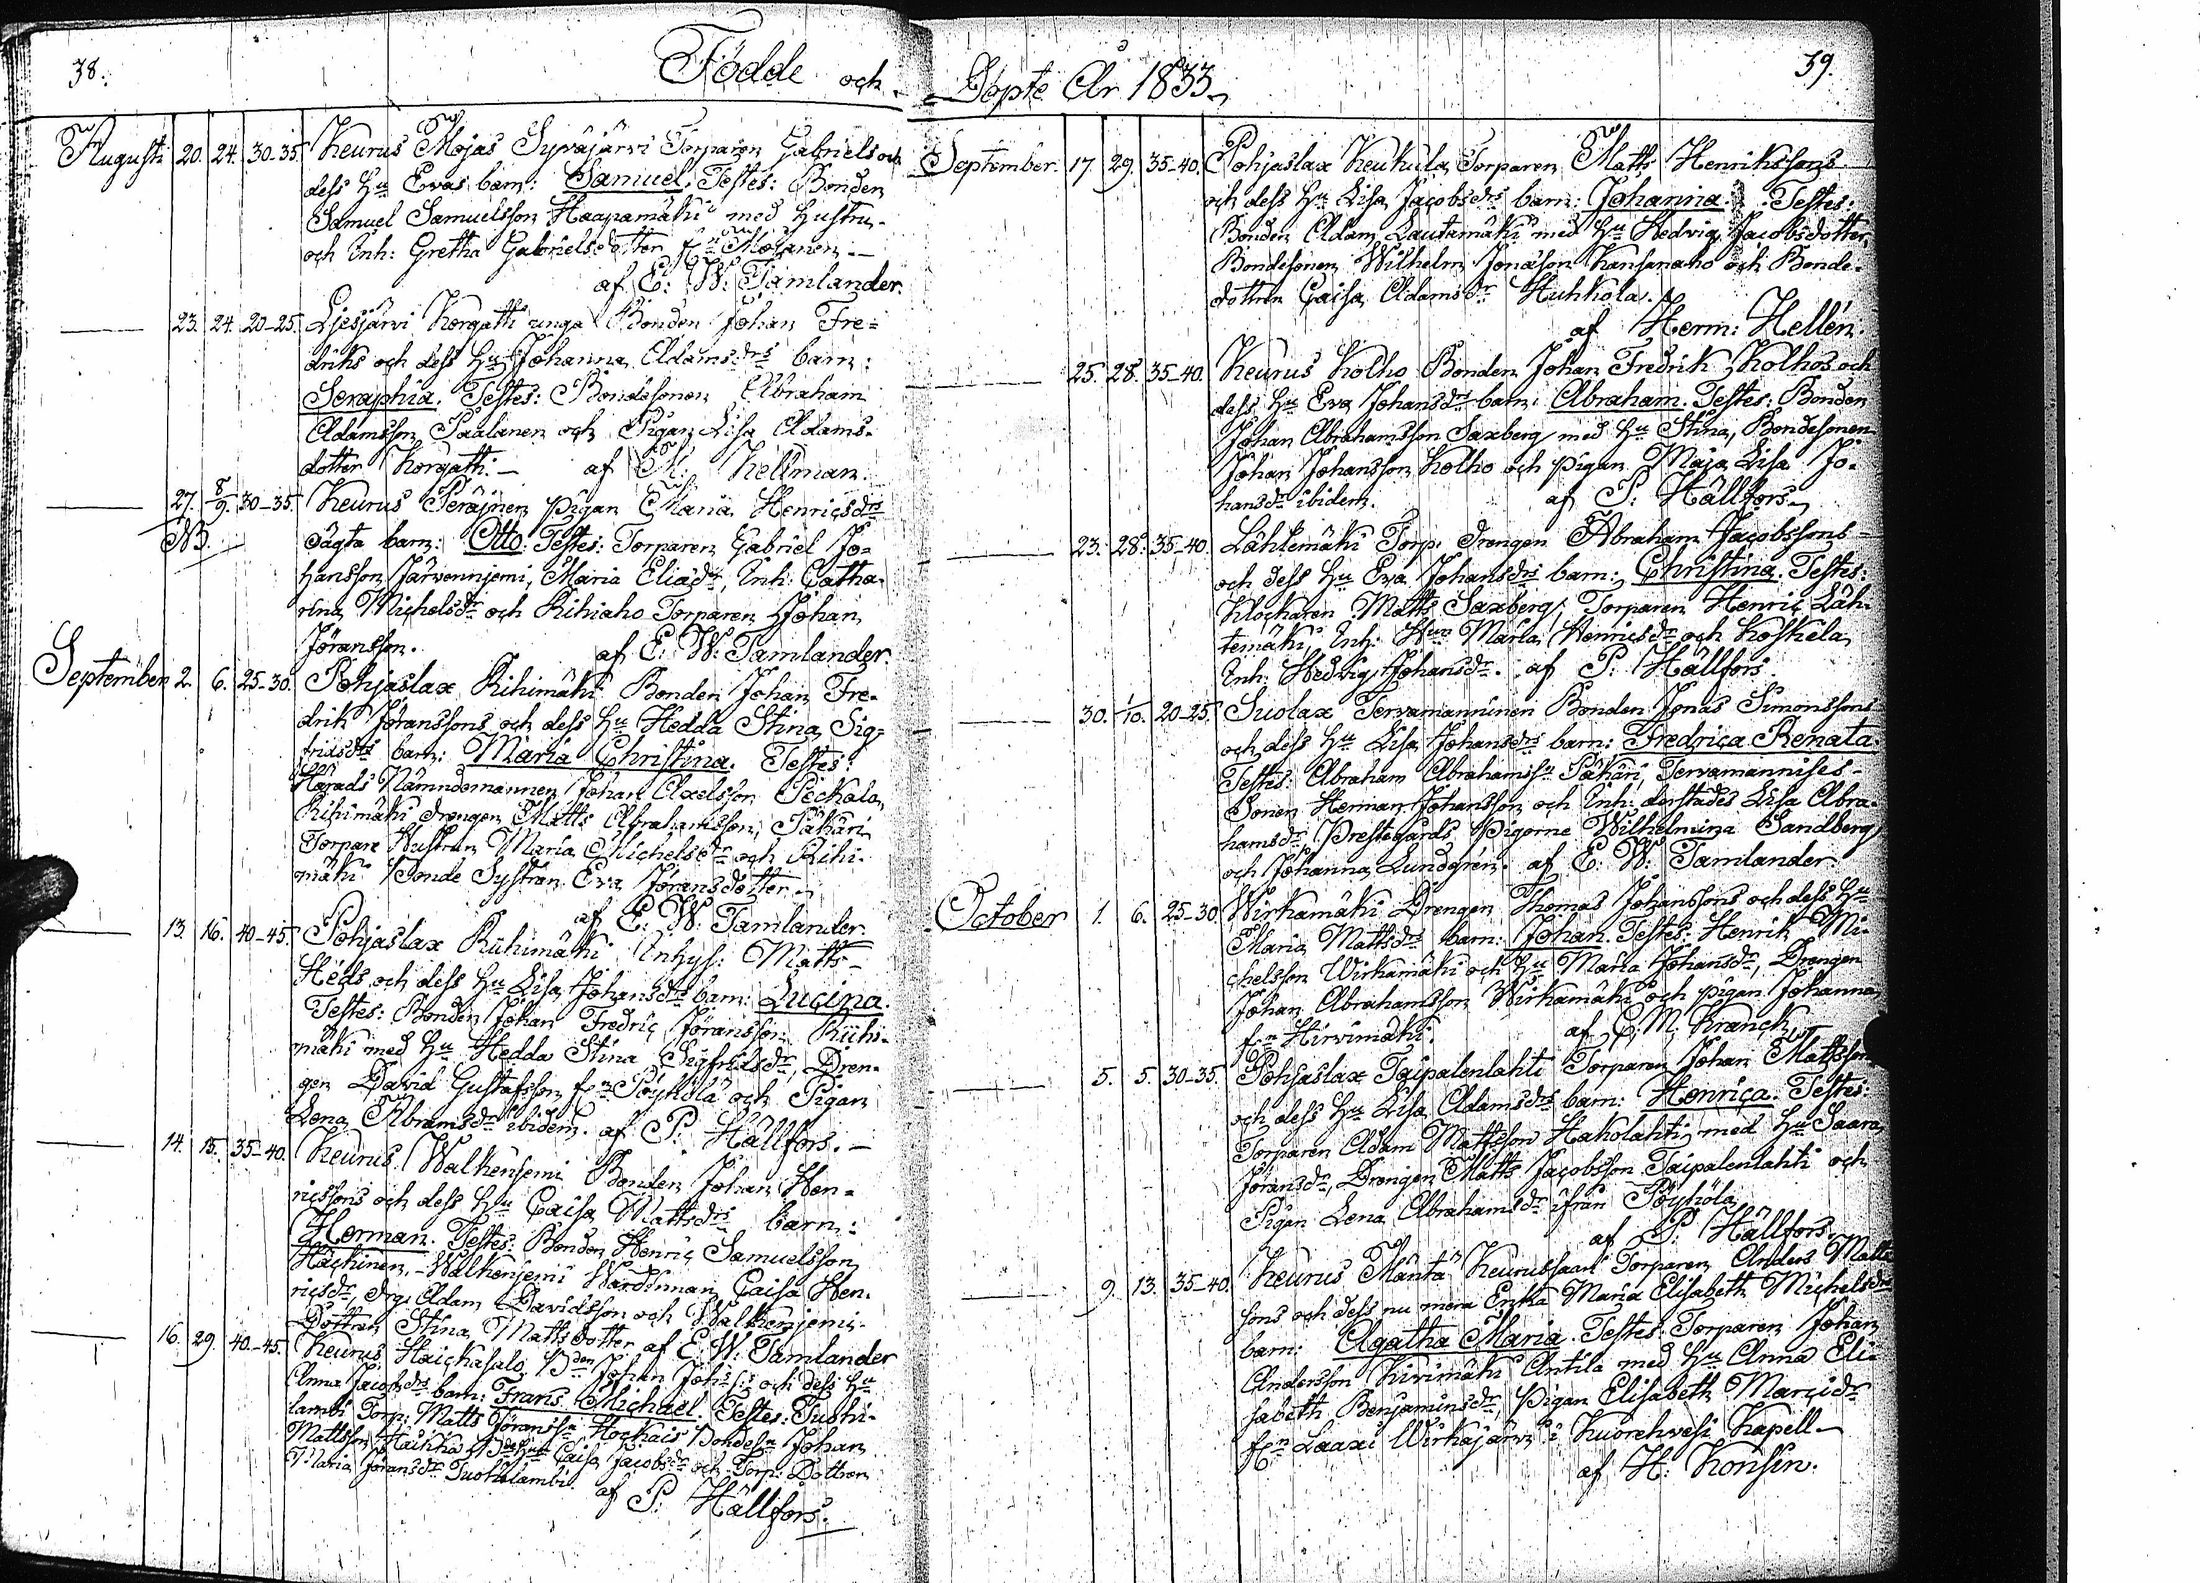 38.
Födde och
Augusti 20. 24. 30-35. Keurus Mojas Syväjärvi Torparen Gabriels och
dess Hu Evas barn: Samuel. Testes: Bonden
Samuel Samuelsson Haapamäki med Hustru
och Inh: Gretha Gabrielsdotter frn Mojanen.
af E: W: Tamlander.
23. 24. 20-25. Liesjärvi Korgatti unga Bonden Johan Fre=
driks och dess Hu Johanna Adamsdrs barn:
Seraphia. Testes: Bondesonen Abraham
Adamsson Paalanen och Pigan Lisa Adams-
dotter Korgatti. af K: Hellman.
27. 8/9. 30-35. Keurus Peräjnen pigan Maria Henricsdrs
NB. oägta barn: Otto. Testes: Torparen Gabriel Jo=
hansson Järvennjemi, Maria Eliædr, Inh: Catha-
rina Michelsdr och Rihiaho Torparen Johan
Jöransson. af E: W: Tamlander.
September 2. 6. 25-30. Pohjaslax Rihimäki Bonden Johan Fre-
drik Jöranssons och dess Hu Hedda Stina Sig=
fridsdrs barn: Maria Christina. Testes:
Härads Nämndemannen Johan Axelsson Peckala,
Rihimäki drengen Matts Abrahamsson, Päkäri
Torpare Hustrun Maria Michelsdr och Rihi-
mäki Bonde Systran Eva Jöransdotter.
af E: W: Tamlander.
13. 16. 40-45. Pohjaslax Riihimäki Inhys: Matts
Heds och dess Hu Lisa Johansdrs barn: Lucina.
Testes: Bonden Johan Fredric Jöransson Riihi-
mäki med Hu Hedda Stina Sigfridsdr, Dren-
gen David Gustafsson frn Pöyhölä och Pigan
Lena Abramsdr ibidem. af P: Hällfors.
14. 15. 35-40. Keurus Walkenjemi Bonden Johan Hen=
ricssons och dess Hu Caisa Mattsdrs barn:
Herman. Testes: Bonden Henric Samuelsson
Häckinen, Walkenjemi Wärdinnan Caisa Hen-
ricsdr, drg: Adam Davidsson och Walkenjemi
Dottren Stina Mattsdotter af E: W: Tamlander
16. 29. 40-45. Keurus Haickasalo Bden Johan Johss:s och dess Hu
Anna Jacobsdrs barn: Frans Michael. Testes: Tuohi-
lambi Torp: Matts Jöransn, Hockais Bondesn Johan
Mattsson, Haikka Caisa Jacobsdr och Torp: Dottren
Maria Jöransdr Tuohilambi. af P: Hällfors.
39.
Döpte År 1833.
September. 17. 29. 35-40. Pohjaslax Keukula Torparen Matts Henrikssons
och dess Hu Lisa Jacobsdrs barn: Johanna. Testes:
Bonden Adam Lautamäki med Hu Hedvig Jacobsdotter,
Bondesonen Wilhelm Jonasson Kansanaho och Bonde-
dottren Caisa Adamsdr Huhkola.
af Herm: Hellén.
25. 28. 35-40. Keurus Kolho Bonden Johan Fredrik Kolhos och
dess Hu Eva Johansdrs barn: Abraham. Testes: Bonden
Johan Abrahamsson Saxberg med Hu Stina, Bondesonen
Johan Johansson Kolho och pigan Maja Lisa Jo-
hansdr ibidem. af P: Hällfors.
23. 28. 35-40. Lähtemäki Torp: drengen Abraham Jacobssons
och dess Hu Eva Johansdrs barn: Christina. Testes:
Klockaren Matts Saxberg, Torparen Henric Läh-
temäki, Inh: Hun Maria Henricsdr och Koskela
Inh: Hedvig Johansdr. af P: Hällfors.
30. 1/10. 20-25. Suolax Tervamanninen Bonden Jonas Simonssons
och dess Hu Lisa Johansdrs barn: Fredrica Renata.
Testes: Abraham Abrahamssn Päkäri, Tervamannises
Sonen Herman Johansson och Inh: derstädes Lisa Abra-
hamsdr, Prestegårds Pigorne Wilhelmina Sandberg
och Johanna Lundgrén. af E: W: Tamlander
October 1. 6. 25-30. Wirkamäki Drengen Thomas Johanssons och dess Hu
Maria Mattsdrs barn: Johan. Testes: Henrik Mi-
chelsson Wirkamäki och Hu Maria Johansdr, Drengen
Johan Abrahamsson Wirkamäki och pigan Johanna
frn Hirvimäki. af C: M: Kranck.
5. 5. 30-35. Pohjaslax Taipalenlahti Torparen Johan Mattsson
och dess Hu Lisa Adamsdrs barn: Henrica. Testes:
Torparen Adam Mattsson Hakolahti med Hu Saara
Jöransdr, Drengen Matts Jacobsson Taipalenlahti och
Pigan Lena Abrahamsdr ifrån Pöyhölä
af P: Hällfors.
9. 13. 35-40. Keurus Mänttä Keurusaari Torparen Anders Matts
sons och dess nu mera Enka Maria Elisabeth Michelsdrs
barn: Agatha Maria. Testes: Torparen Johan
Andersson Kivimäki Antila med Hu Anna Eli-
sabeth Benjaminsdr, Pigan Elisabeth Marcidr
frn Laaxi Wirkajärvi i Kuorehvesi Kapell.
af H: Konsin.